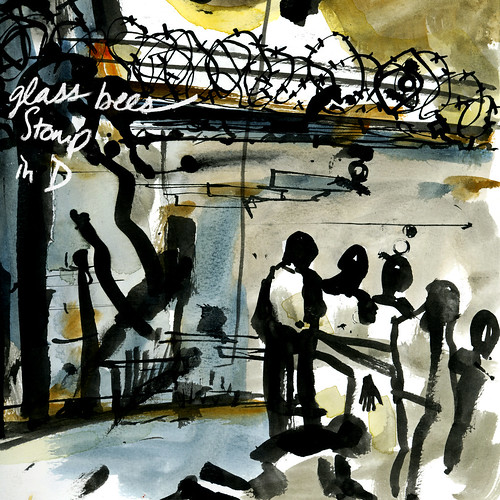 glass bees
Stomp
in D